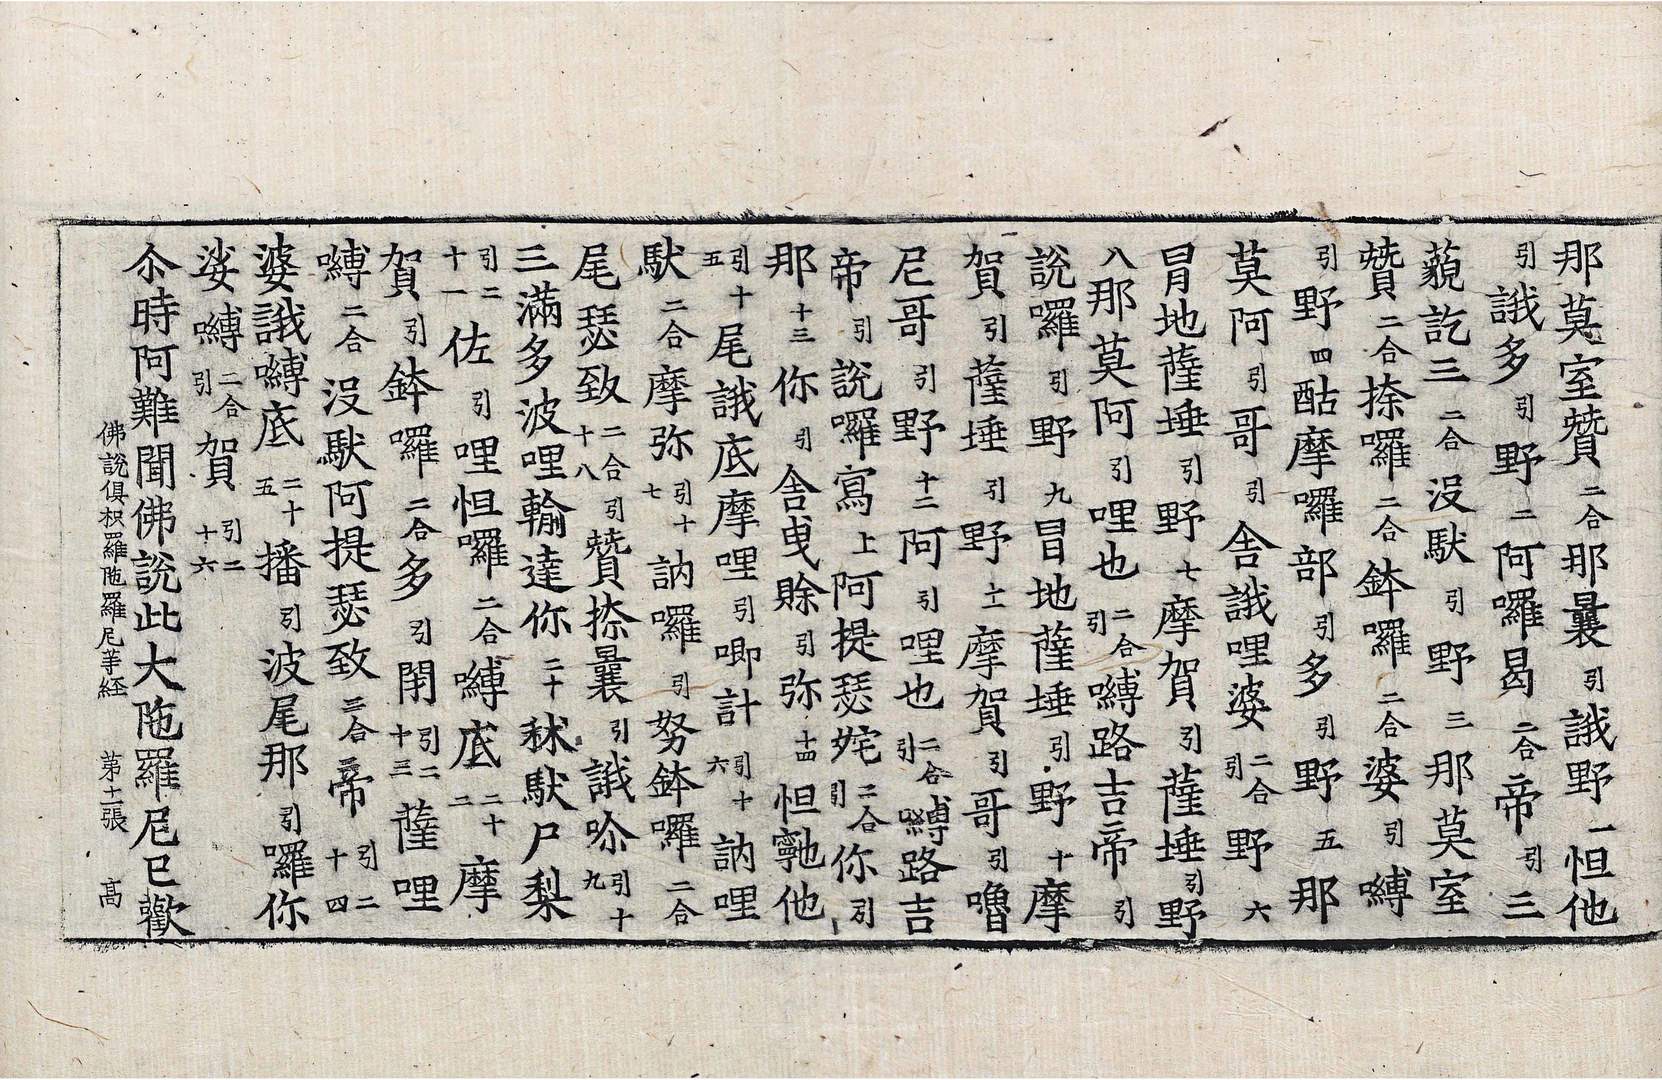 那莫室贊二合那曩引誐野一怛他
引誐多引野二阿囉曷二合帝引三
藐訖三二合没馱引野三那莫室
贊二合捺囉二合鉢囉二合婆引嚩
引野四酤摩囉部引多引野五那
莫阿引哥引舍誐哩婆二合引野六
冐地薩埵引野七摩賀引薩埵引野
八那莫阿引哩也二合引嚩路吉帝引
說囉引野九冐地薩埵引野十摩
賀引薩埵引野十一摩賀引哥引嚕
尼哥引野十二阿引哩也二合引嚩路吉
帝引說囉寫上阿提瑟姹二合引你引
那十三你引舍曳賒引弥十四怛虢他引
十五尾誐底摩哩引唧計引十六訥哩
馱二合摩弥引十七訥囉引努鉢囉二合
尾瑟致二合引十八贊捺曩引誐吤引十九
三滿多波哩輸達你二十秫馱尸梨
引二十一佐引哩怛囉二合嚩底二十二摩
賀引鉢囉二合多引閉引二十三薩哩
嚩二合没馱阿提瑟致三合帝引二十四
婆誐嚩底二十五播引波尾那引囉你
娑嚩二合引賀引二十六
尒時阿難聞佛說此大陁羅尼已歡
佛說俱枳羅陁羅尼等経 第十二張 高